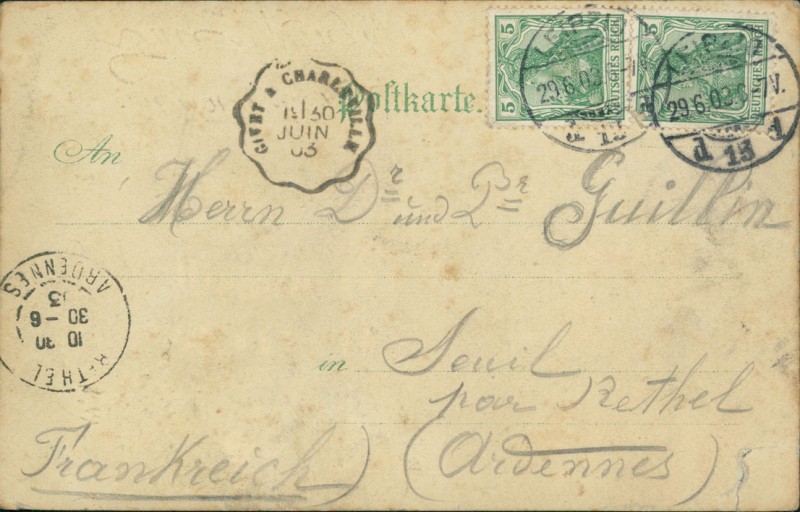 5 DEUTSCHES REICH
5 DEUTSCHES REICH
29.6.03
29.6.03 N.
d 13
d 13 1
GIVET A CHARLEVILLE
30
JUIN
03
Postkarte.
An
Herrn Dr und Pr Guillin
ARDENNES
30 - 6
10 30
RETHEL
in Seuil
par Rethel
Frankreich) (Ardennes)